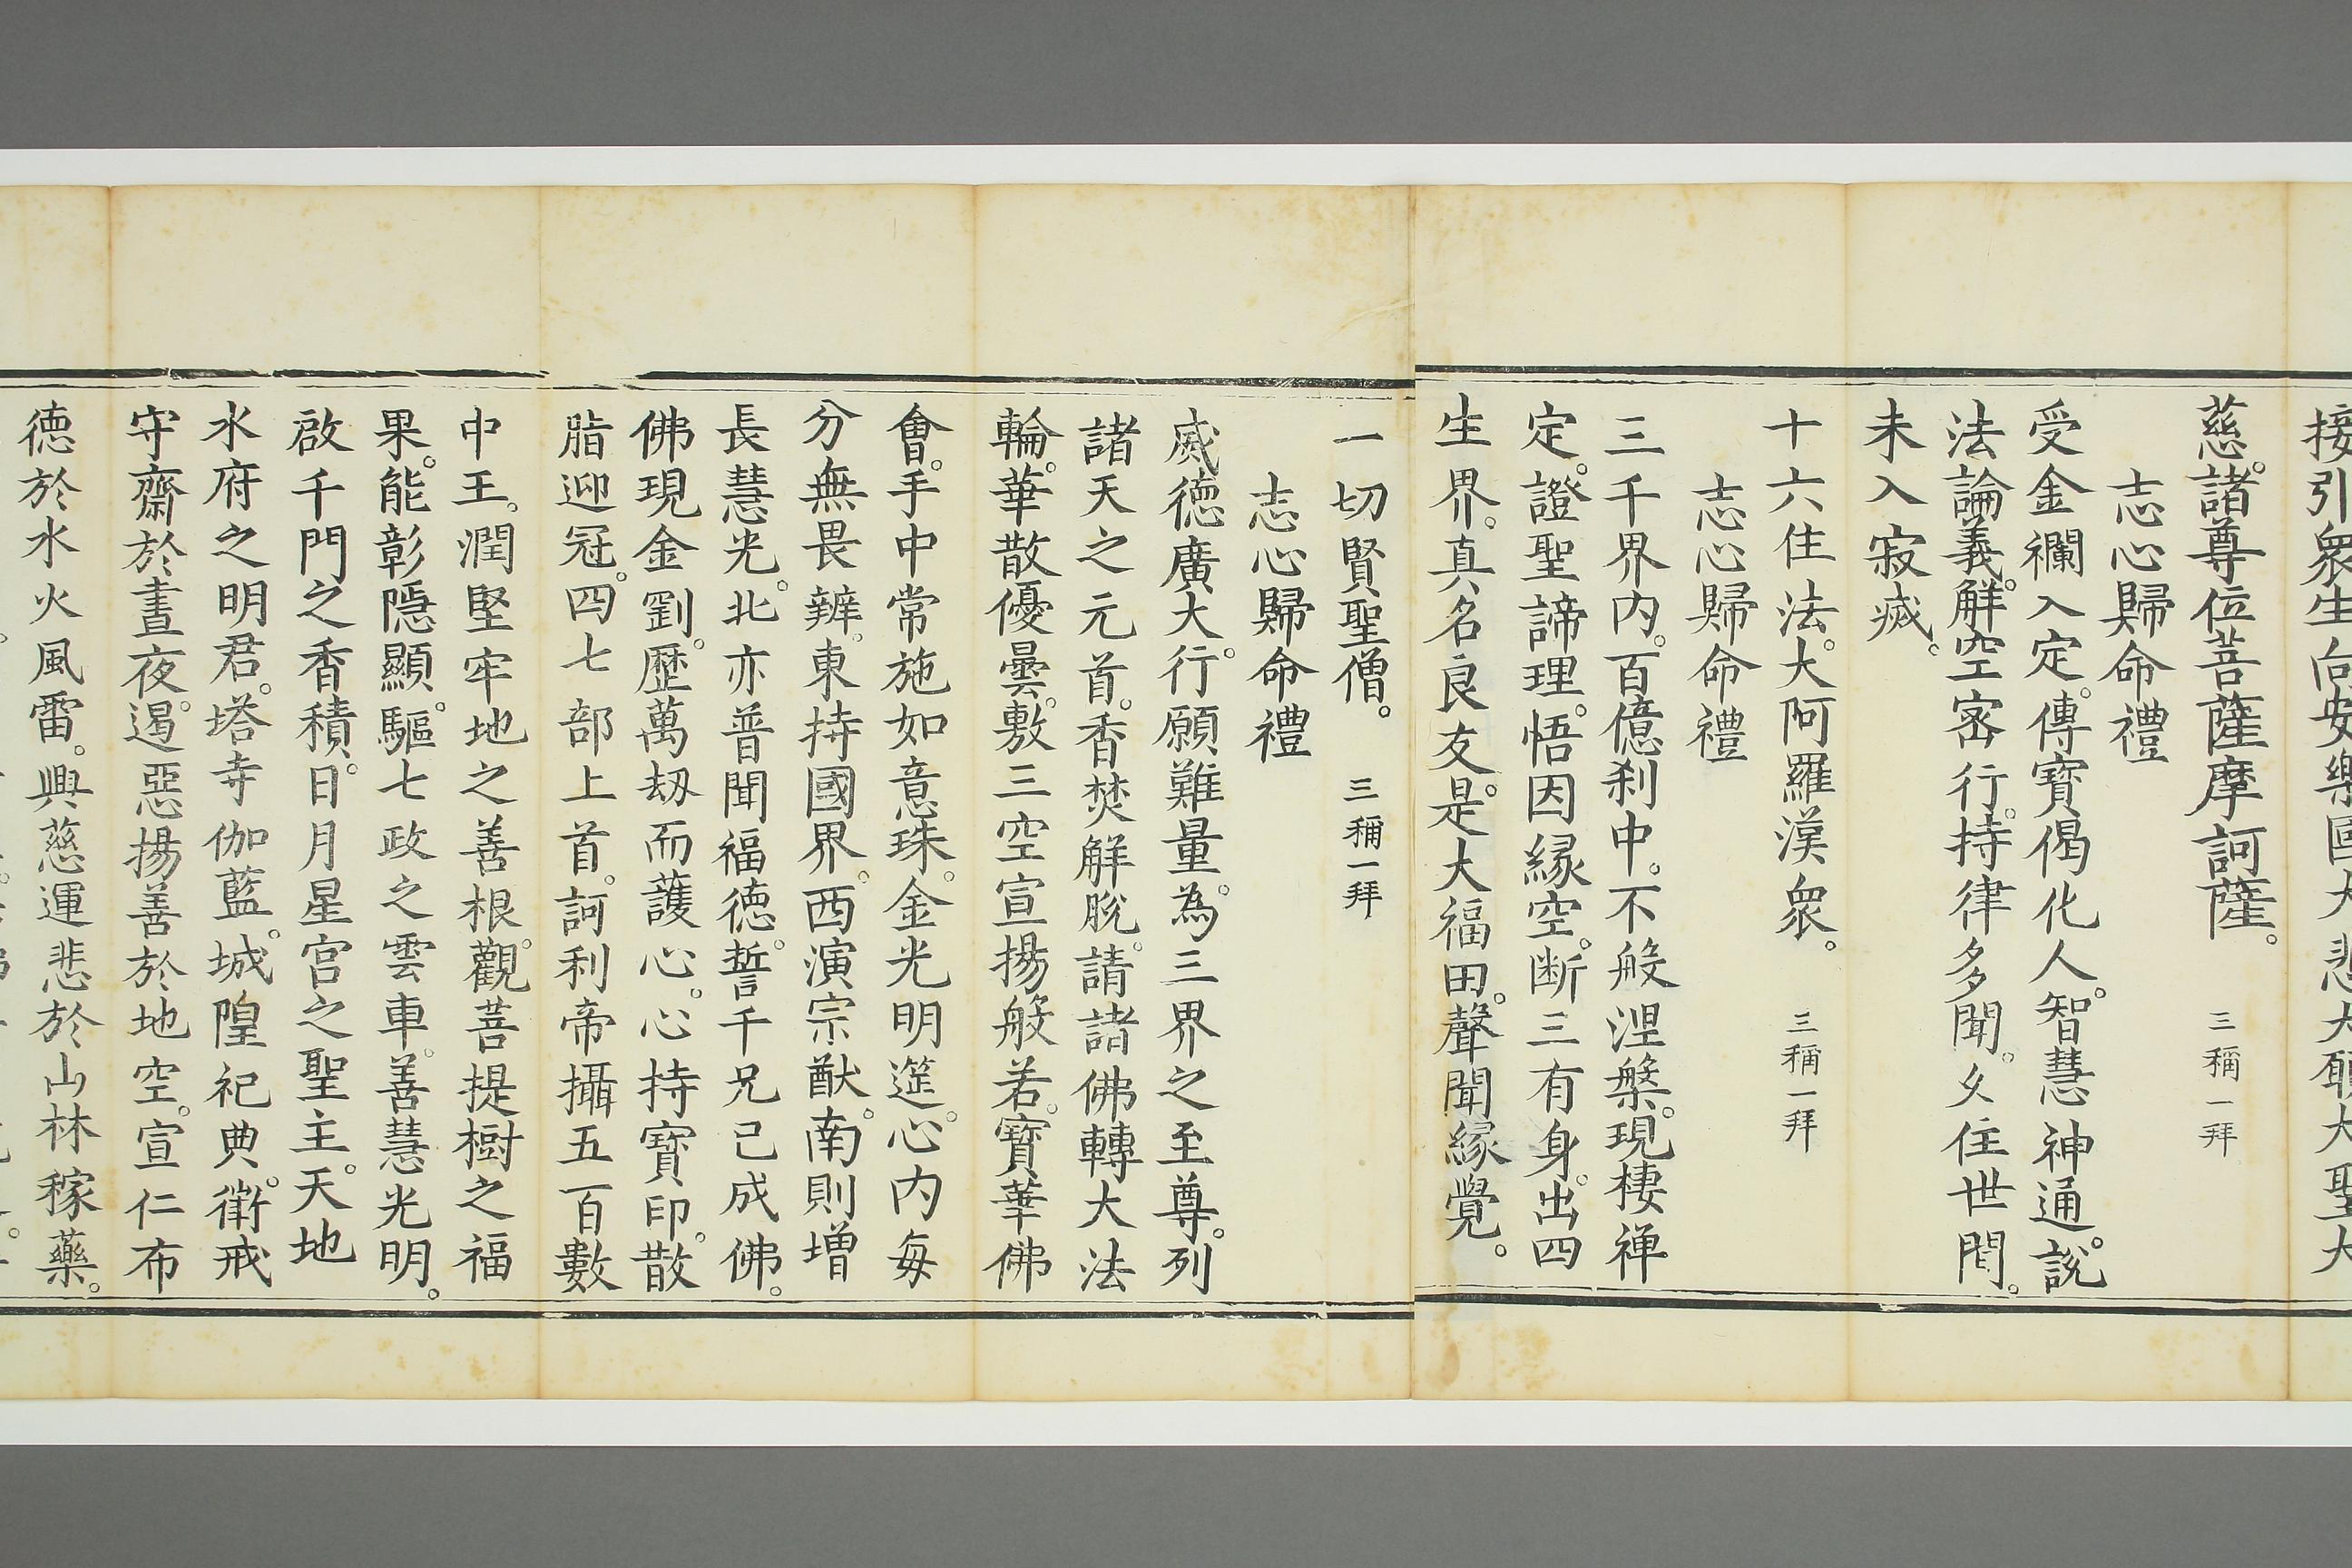 接引衆生向安樂國大悲大願大聖大
慈。諸尊位菩薩摩訶薩。 三稱一拜
志心歸命禮
受金襴入定。傳寶偈化人。智慧神通。說
法論義。解空密行。持律多聞。久住世間。
未入寂滅。
十六住法。大阿羅漢衆。 三稱一拜
志心歸命禮
三千界內。百億刹中。不般涅槃。現棲禅
定。證聖諦理。悟因緣空。断三有身。出四
生界。真名良友。是大福田。聲聞緣覺。
一切賢聖僧。 三稱一拜
志心歸命禮
威德廣大。行願難量。為三界之至尊。列
諸天之元首。香焚解脫。請諸佛轉大法
輪。華散優曇。敷三空宣揚般若。寶華佛
會。手中常施如意珠。金光明筵。心內每
分無畏辨。東持國界。西演宗猷。南則增
長慧光。北亦普聞福德。誓千兄已成佛。
佛現金劉。歷萬刼而護心。心持寶印。散
脂迎冠。四七部上首。訶利帝攝五百數
中王。潤堅牢地之善根。觀菩提樹之福
果。能彰隱顯。驅七政之雲車。善慧光明。
啟千門之香積。日月星宮之聖主。天地
水府之明君。塔寺伽藍。城隍祀典。衛戒
守齋於晝夜。遏惡揚善於地空。宣仁布
德於水火風雷。興慈運悲於山林稼藥。